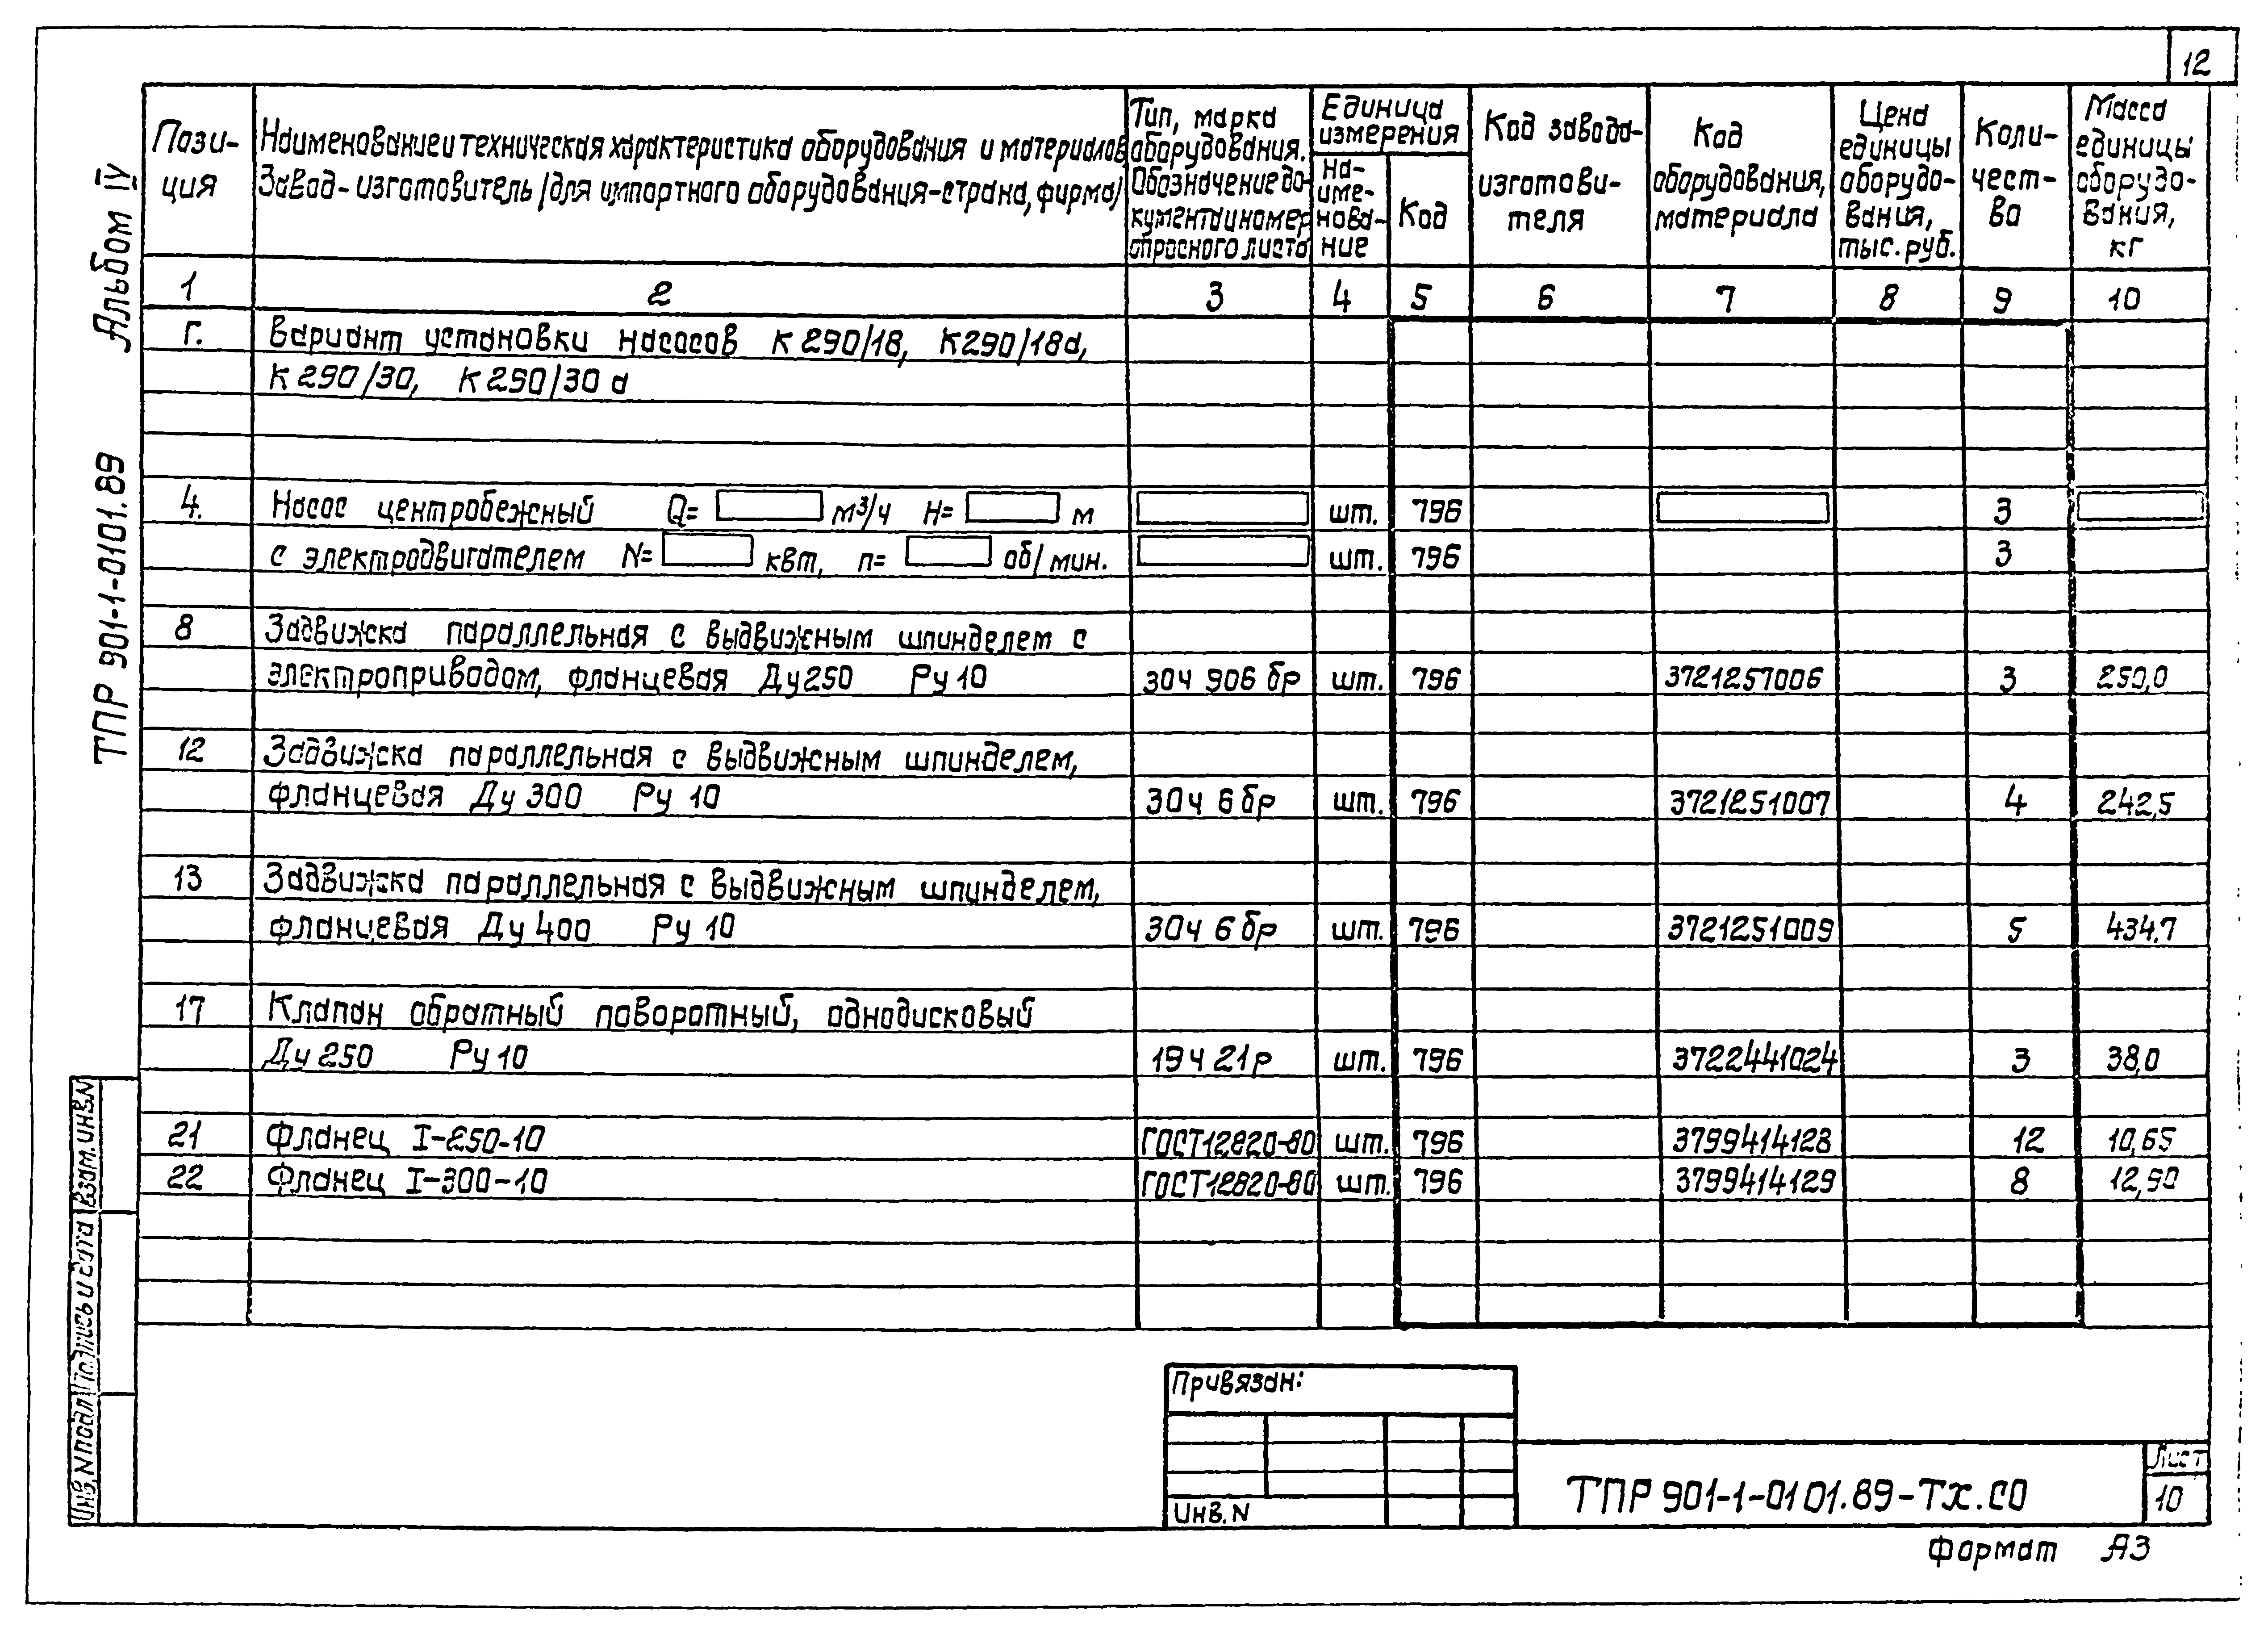 12
Альбом IV
ТПР 901-1-0101.89
Пози-
ция
Наименование и техническая характеристика оборудования и материалов
Завод-изготовитель /для импортного оборудования-страна, фирма/
Тип, марка
оборудования.
Обозначение до-
кумента и номер
опросного листа
Единица
измерения
на-
име-
нова-
ние
Код
Код завода-
изготови-
теля
Код
оборудования,
материала
Цена
единицы
оборудо-
вания,
тыс. руб.
Коли-
чест-
во
Масса
единицы
оборудо-
вания,
кг
1 2 3 4 5 6 7 8 9 10
Г. Вариант установки насосов К 290/18, К290/18а,
К 290/30, К 290/30 а
4. Насос центробежный Q= м³/ч Н= м шт. 796 3
с электродвигателем N= квт, п= об/мин. шт. 796 3
8 Задвижка параллельная с выдвижным шпинделем с
электроприводом, фланцевая Ду250 Ру 10 30ч 906 бр шт. 796 3721257006 3 250,0
12 Задвижка параллельная с выдвижным шпинделем,
фланцевая Ду 300 Ру 10 30ч 6 бр шт. 796 3721251007 4 242,5
13 Задвижка параллельная с выдвижным шпинделем,
фланцевая Ду 400 Ру 10 30ч 6 бр шт. 796 3721251009 5 434.7
17 Клапан обратный поворотный, однодисковый
Ду 250 Ру 10 19ч 21р шт. 796 3722441024 3 38,0
21 Фланец I-250-10 ГОСТ12820-80 шт. 796 3799414128 12 10,65
22 Фланец I-300-10 ГОСТ12820-80 шт. 796 3799414129 8 12,90
Взам. инв. N
Подпись и дата
Инв. N подл
Привязан:
Инв. N
ТПР 901-1-0101.89-ТХ.СО
Лист
10
Формат А3